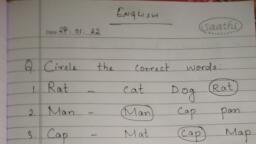 English
saathi
Date 29.01.22
Q Circle the correct words.
1. Rat - cat Dog Rat
2. Man - Man Cap pan
3. Cap - Mat Cap Map